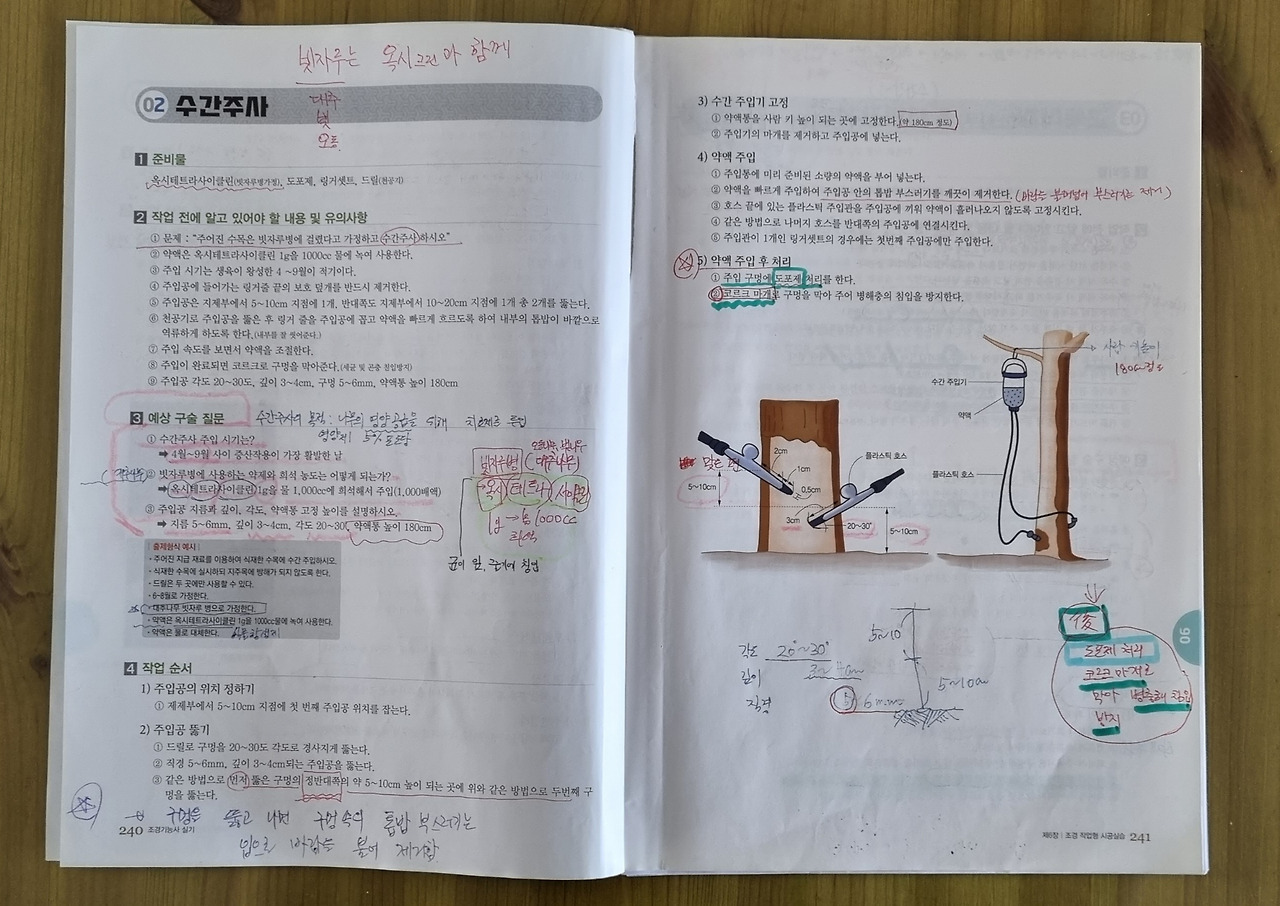 빗자루는 옥시크린과 함께
02 수간주사
대추
빗
오동
1 준비물
옥시테트라사이클린(빗자루병가정), 도포제, 링거셋트, 드릴(천공기)
2 작업 전에 알고 있어야 할 내용 및 유의사항
① 문제 : "주어진 수목은 빗자루병에 걸렸다고 가정하고 수간주사하시오"
② 약액은 옥시테트라사이클린 1g을 1000cc 물에 녹여 사용한다.
③ 주입 시기는 생육이 왕성한 4 ~9월이 적기이다.
④ 주입공에 들어가는 링거줄 끝의 보호 덮개를 반드시 제거한다.
⑤ 주입공은 지제부에서 5~10cm 지점에 1개, 반대쪽도 지제부에서 10~20cm 지점에 1개 총 2개를 뚫는다.
⑥ 천공기로 주입공을 뚫은 후 링거 줄을 주입공에 꼽고 약액을 빠르게 흐르도록 하여 내부의 톱밥이 바깥으로
역류하게 하도록 한다.(내부를 잘 씻어준다.)
⑦ 주입 속도를 보면서 약액을 조절한다.
⑧ 주입이 완료되면 코르크로 구멍을 막아준다.(세균 및 곤충 침입방지)
⑨ 주입공 각도 20~30도, 깊이 3~4cm, 구멍 5~6mm, 약액통 높이 180cm
3 예상 구술 질문
수간주사의 목적 : 나무의 영양공급을 위해
영양제
① 수간주사 주입 시기는?
➡ 4월~9월 사이 증산작용이 가장 활발한 날
② 빗자루병에 사용하는 약제와 희석 농도는 어떻게 되는가?
➡ 옥시테트라사이클린 1g을 물 1,000cc에 희석해서 주입(1,000배액)
③ 주입공 지름과 깊이, 각도, 약액통 고정 높이를 설명하시오.
➡ 지름 5~6mm, 깊이 3~4cm, 각도 20~30°, 약액통 높이 180cm
빗자루병 (대추나무)
옥시(테트라)사이클린
1g → 물 1000cc
희석
출제형식 예시
• 주어진 지급 재료를 이용하여 식재한 수목에 수간 주입하시오.
• 식재한 수목에 실시하되 지주목에 방해가 되지 않도록 한다.
• 드릴은 두 곳에만 사용할 수 있다.
• 6~8월로 가정한다.
• 대추나무 빗자루 병으로 가정한다.
• 약액은 옥시테트라사이클린 1g을 1000cc물에 녹여 사용한다.
• 약액은 물로 대체한다.
4 작업 순서
1) 주입공의 위치 정하기
① 제제부에서 5~10cm 지점에 첫 번째 주입공 위치를 잡는다.
2) 주입공 뚫기
① 드릴로 구멍을 20~30도 각도로 경사지게 뚫는다.
② 직경 5~6mm, 깊이 3~4cm되는 주입공을 뚫는다.
③ 같은 방법으로 먼저 뚫은 구멍의 정반대쪽의 약 5~10cm 높이 되는 곳에 위와 같은 방법으로 두번째 구
멍을 뚫는다.
→ 구멍을 뚫고 나면 구멍속의 톱밥 부스러기는
입으로 바람을 불어 제거함
240 조경기능사 실기
3) 수간 주입기 고정
① 약액통을 사람 키 높이 되는 곳에 고정한다.(약 180cm 정도)
② 주입기의 마개를 제거하고 주입공에 넣는다.
4) 약액 주입
① 주입통에 미리 준비된 소량의 약액을 부어 넣는다.
② 약액을 빠르게 주입하여 주입공 안의 톱밥 부스러기를 깨끗이 제거한다. (바람을 불어넣어 부스러기를 제거)
③ 호스 끝에 있는 플라스틱 주입관을 주입공에 끼워 약액이 흘러나오지 않도록 고정시킨다.
④ 같은 방법으로 나머지 호스를 반대쪽의 주입공에 연결시킨다.
⑤ 주입관이 1개인 링거셋트의 경우에는 첫번째 주입공에만 주입한다.
5) 약액 주입 후 처리
① 주입 구멍에 도포제 처리를 한다.
② 코르크 마개로 구멍을 막아 주어 병해충의 침입을 방지한다.
사람 키높이
180cm정도
수간 주입기
약액
플라스틱 호스
맞은 편
2cm
1cm
0.5cm
5~10cm
플라스틱 호스
3cm
20~30°
5~10cm
각도 20°~30°
깊이 3~4cm
직경 5) 6mm
5~10
5~10cm
後
도포제 처리
코르크 마개로
막아 병충해 침입
방지
06
제6장 | 조경 작업형 시공실습 241